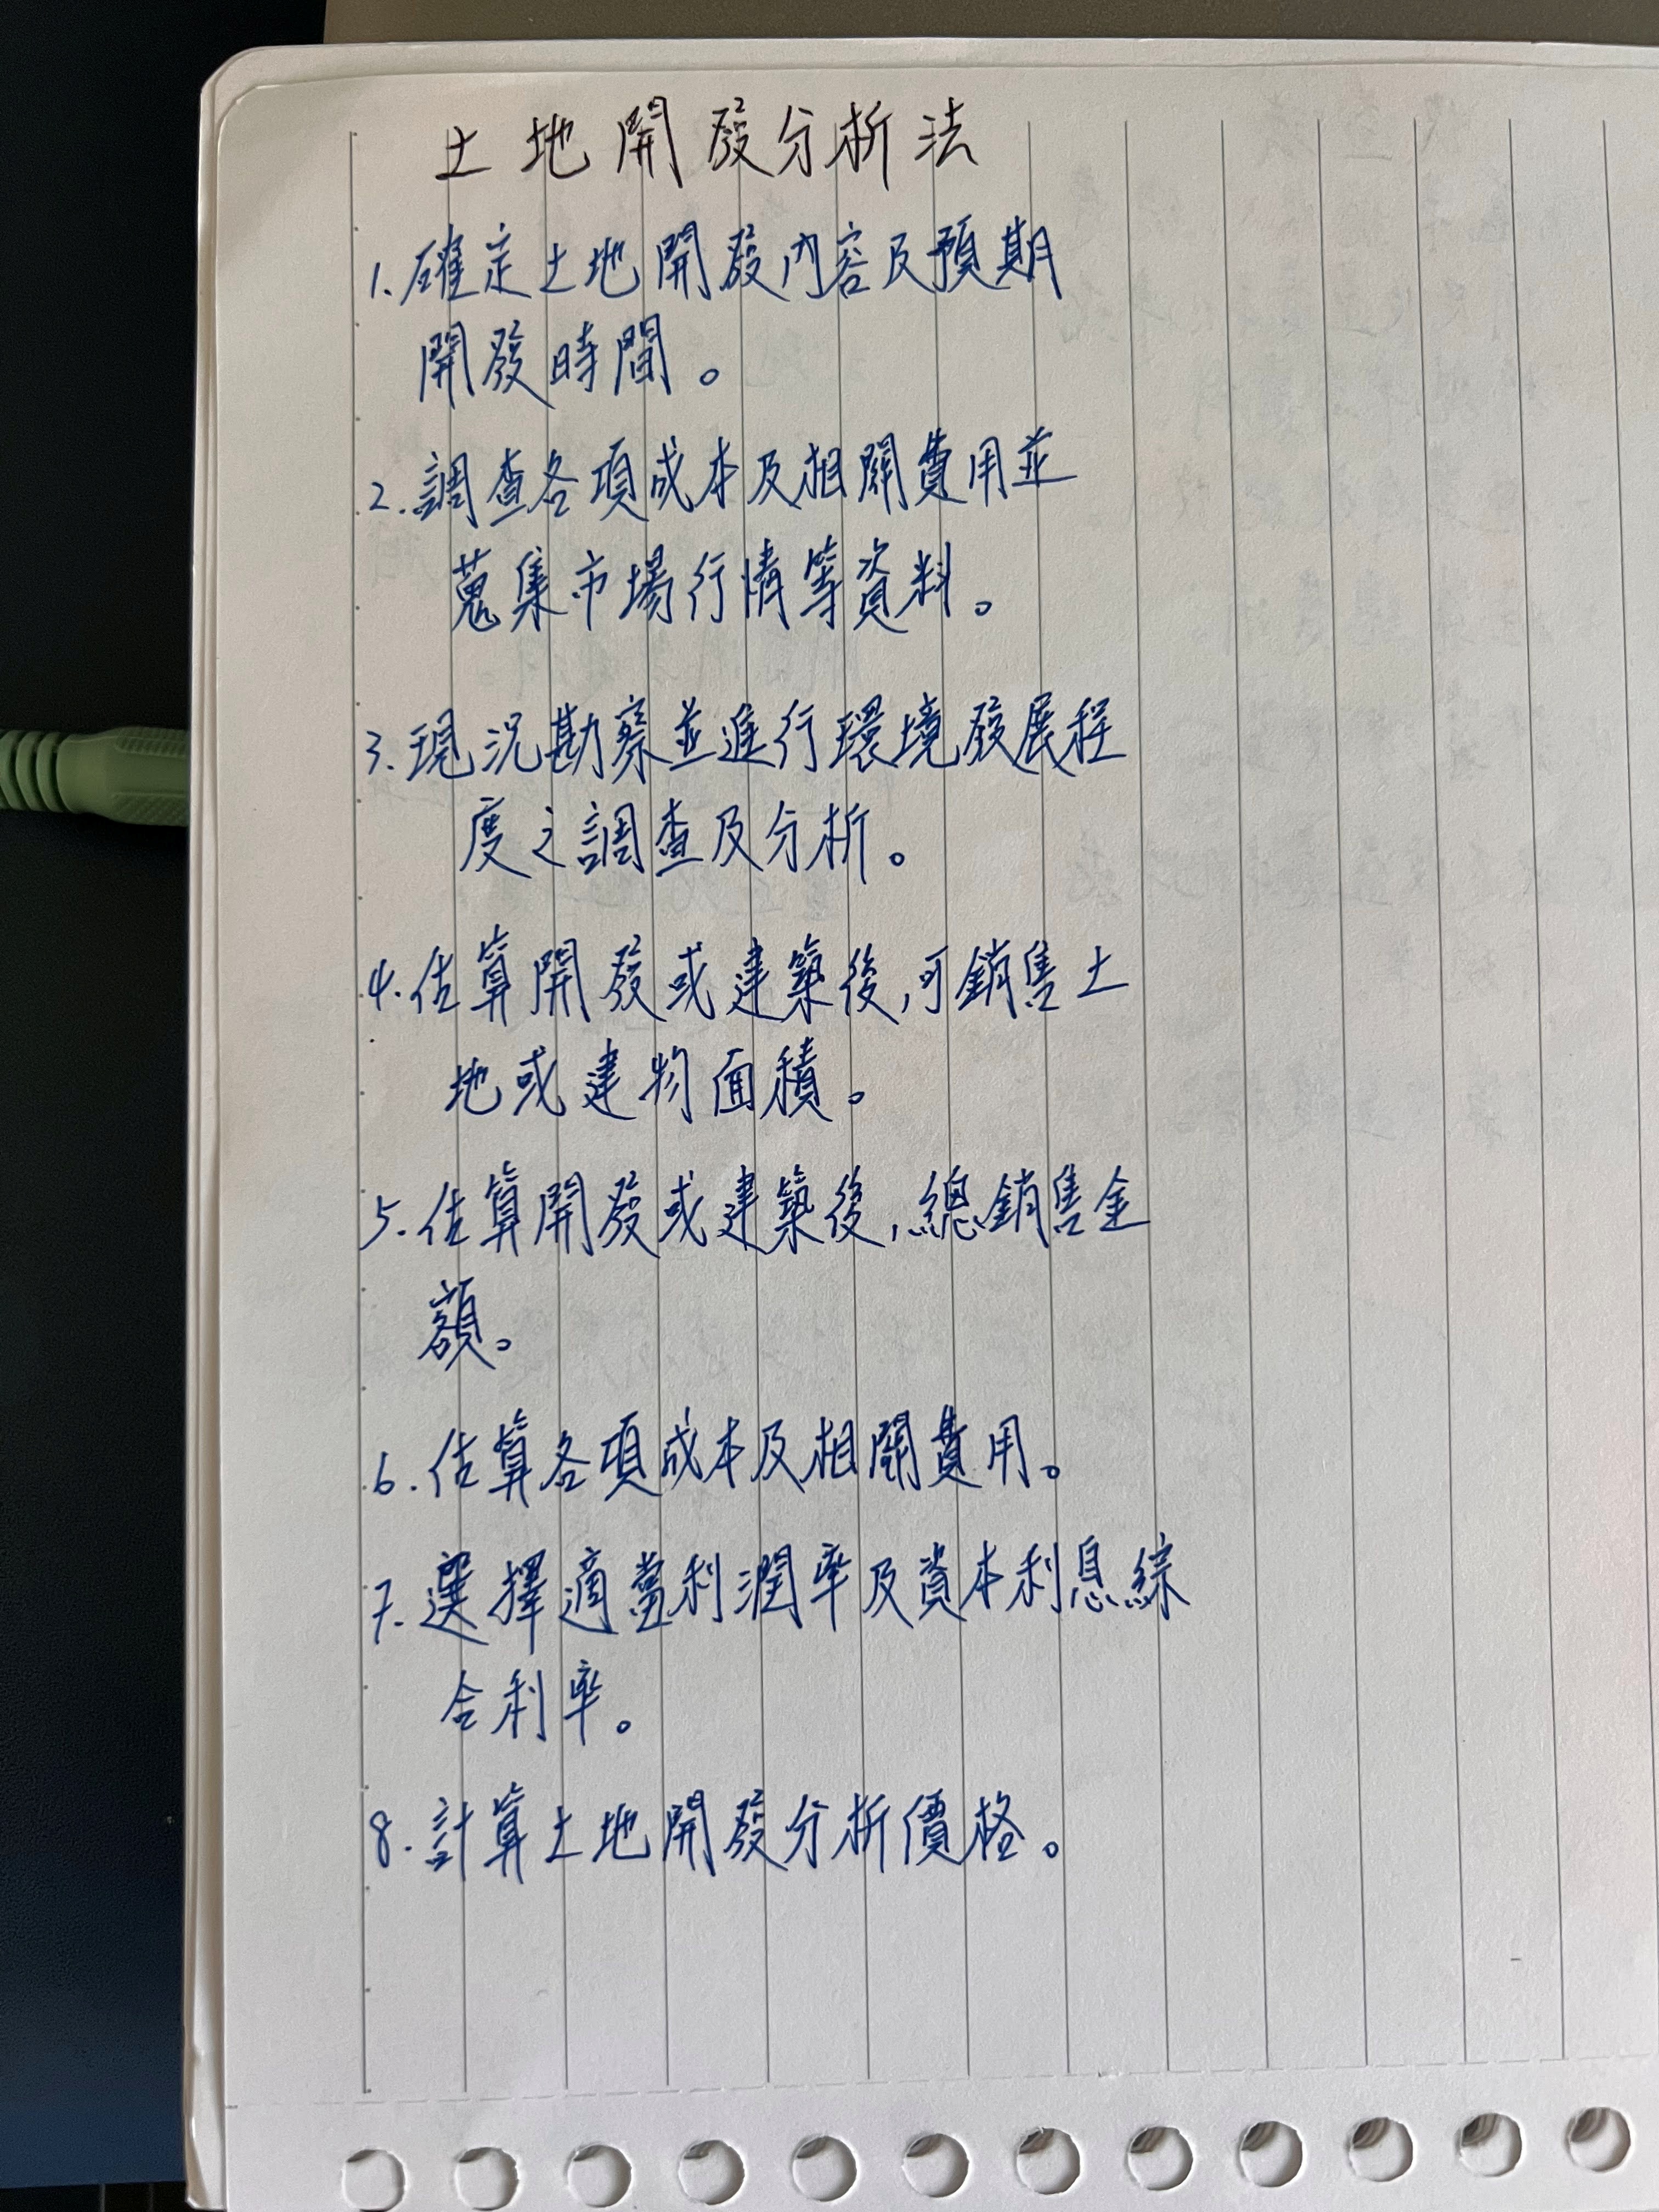 土地開發分析法
1.確定土地開發內容及預期
開發時間。
2.調查各項成本及相關費用並
蒐集市場行情等資料。
3.現況勘察並進行環境發展程
度之調查及分析。
4.估算開發或建築後,可銷售土
地或建物面積。
5.估算開發或建築後,總銷售金
額。
6.估算各項成本及相關費用。
7.選擇適當利潤率及資本利息綜
合利率。
8.計算土地開發分析價格。